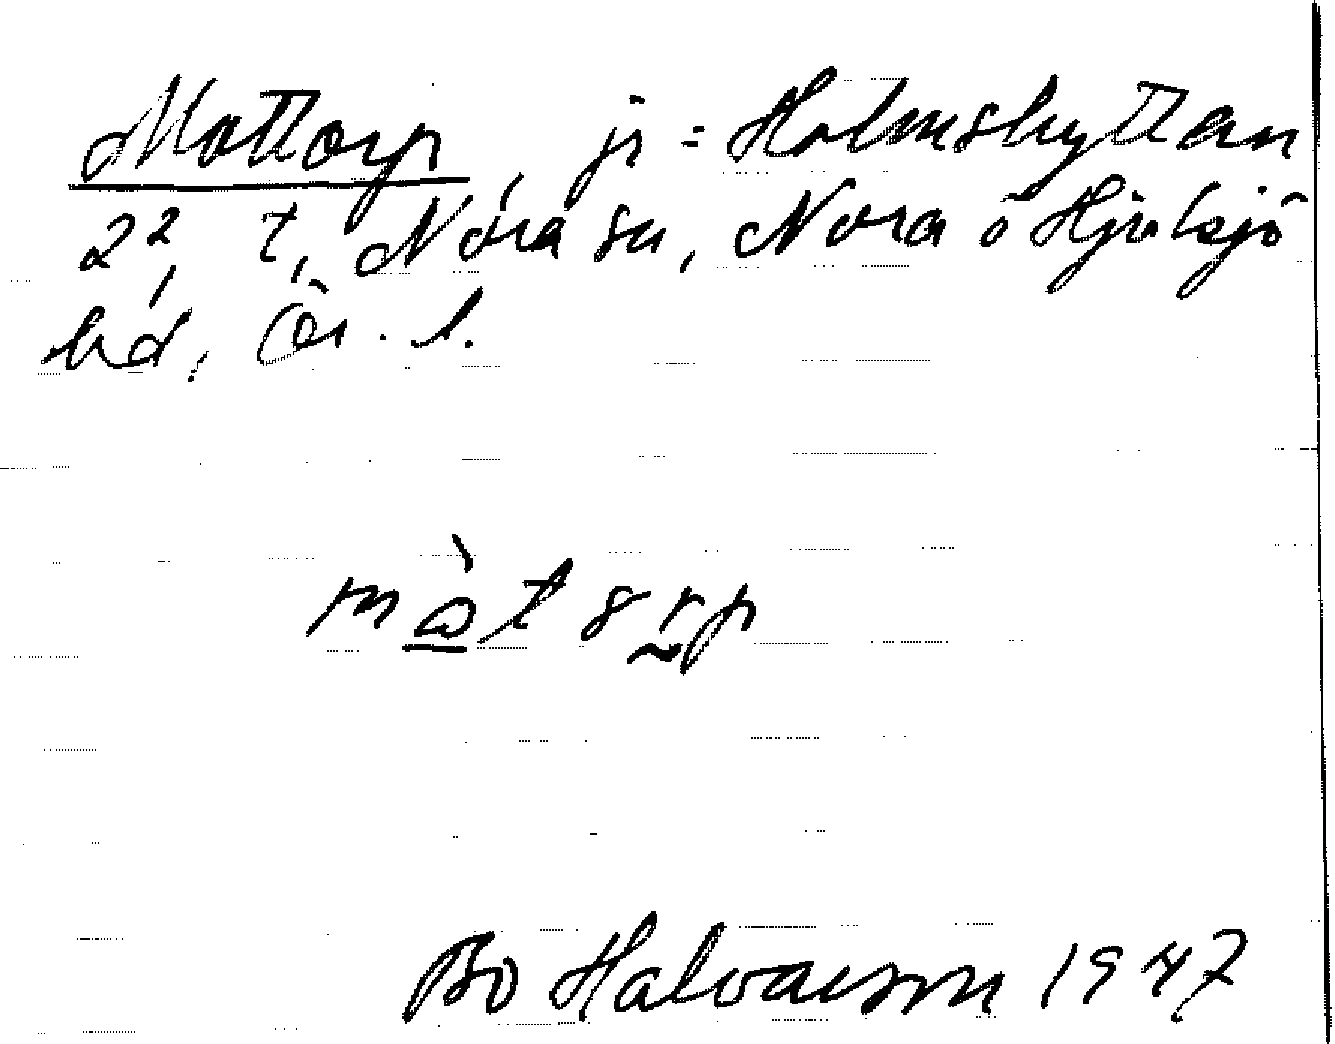 Mottorp, jr = Holmshyttan
2², t, Nora sn, Nora o Hjulsjö
bd, Ör. l.
Bo Halvarson 1947